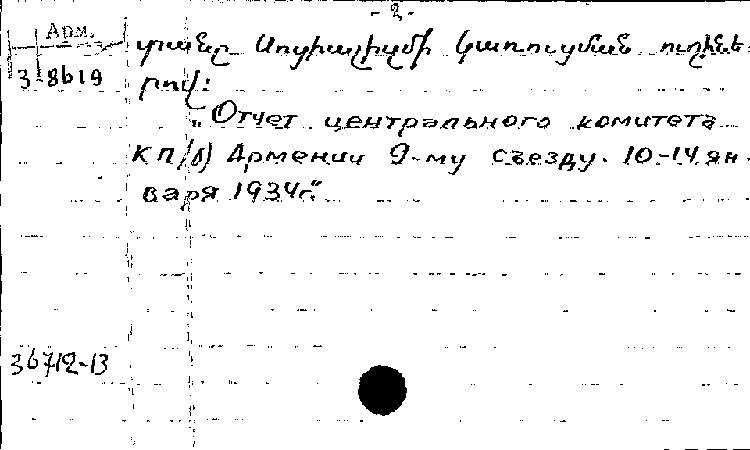 - 2 -
Арм.
3 8619
տաևը Սոցիալիզմի կառուցման ուղինե
րով:
„Отчет центрального комитета
КП/б) Армении 9-му съезду. 10-14 ян-
варя 1934г."
36712-13